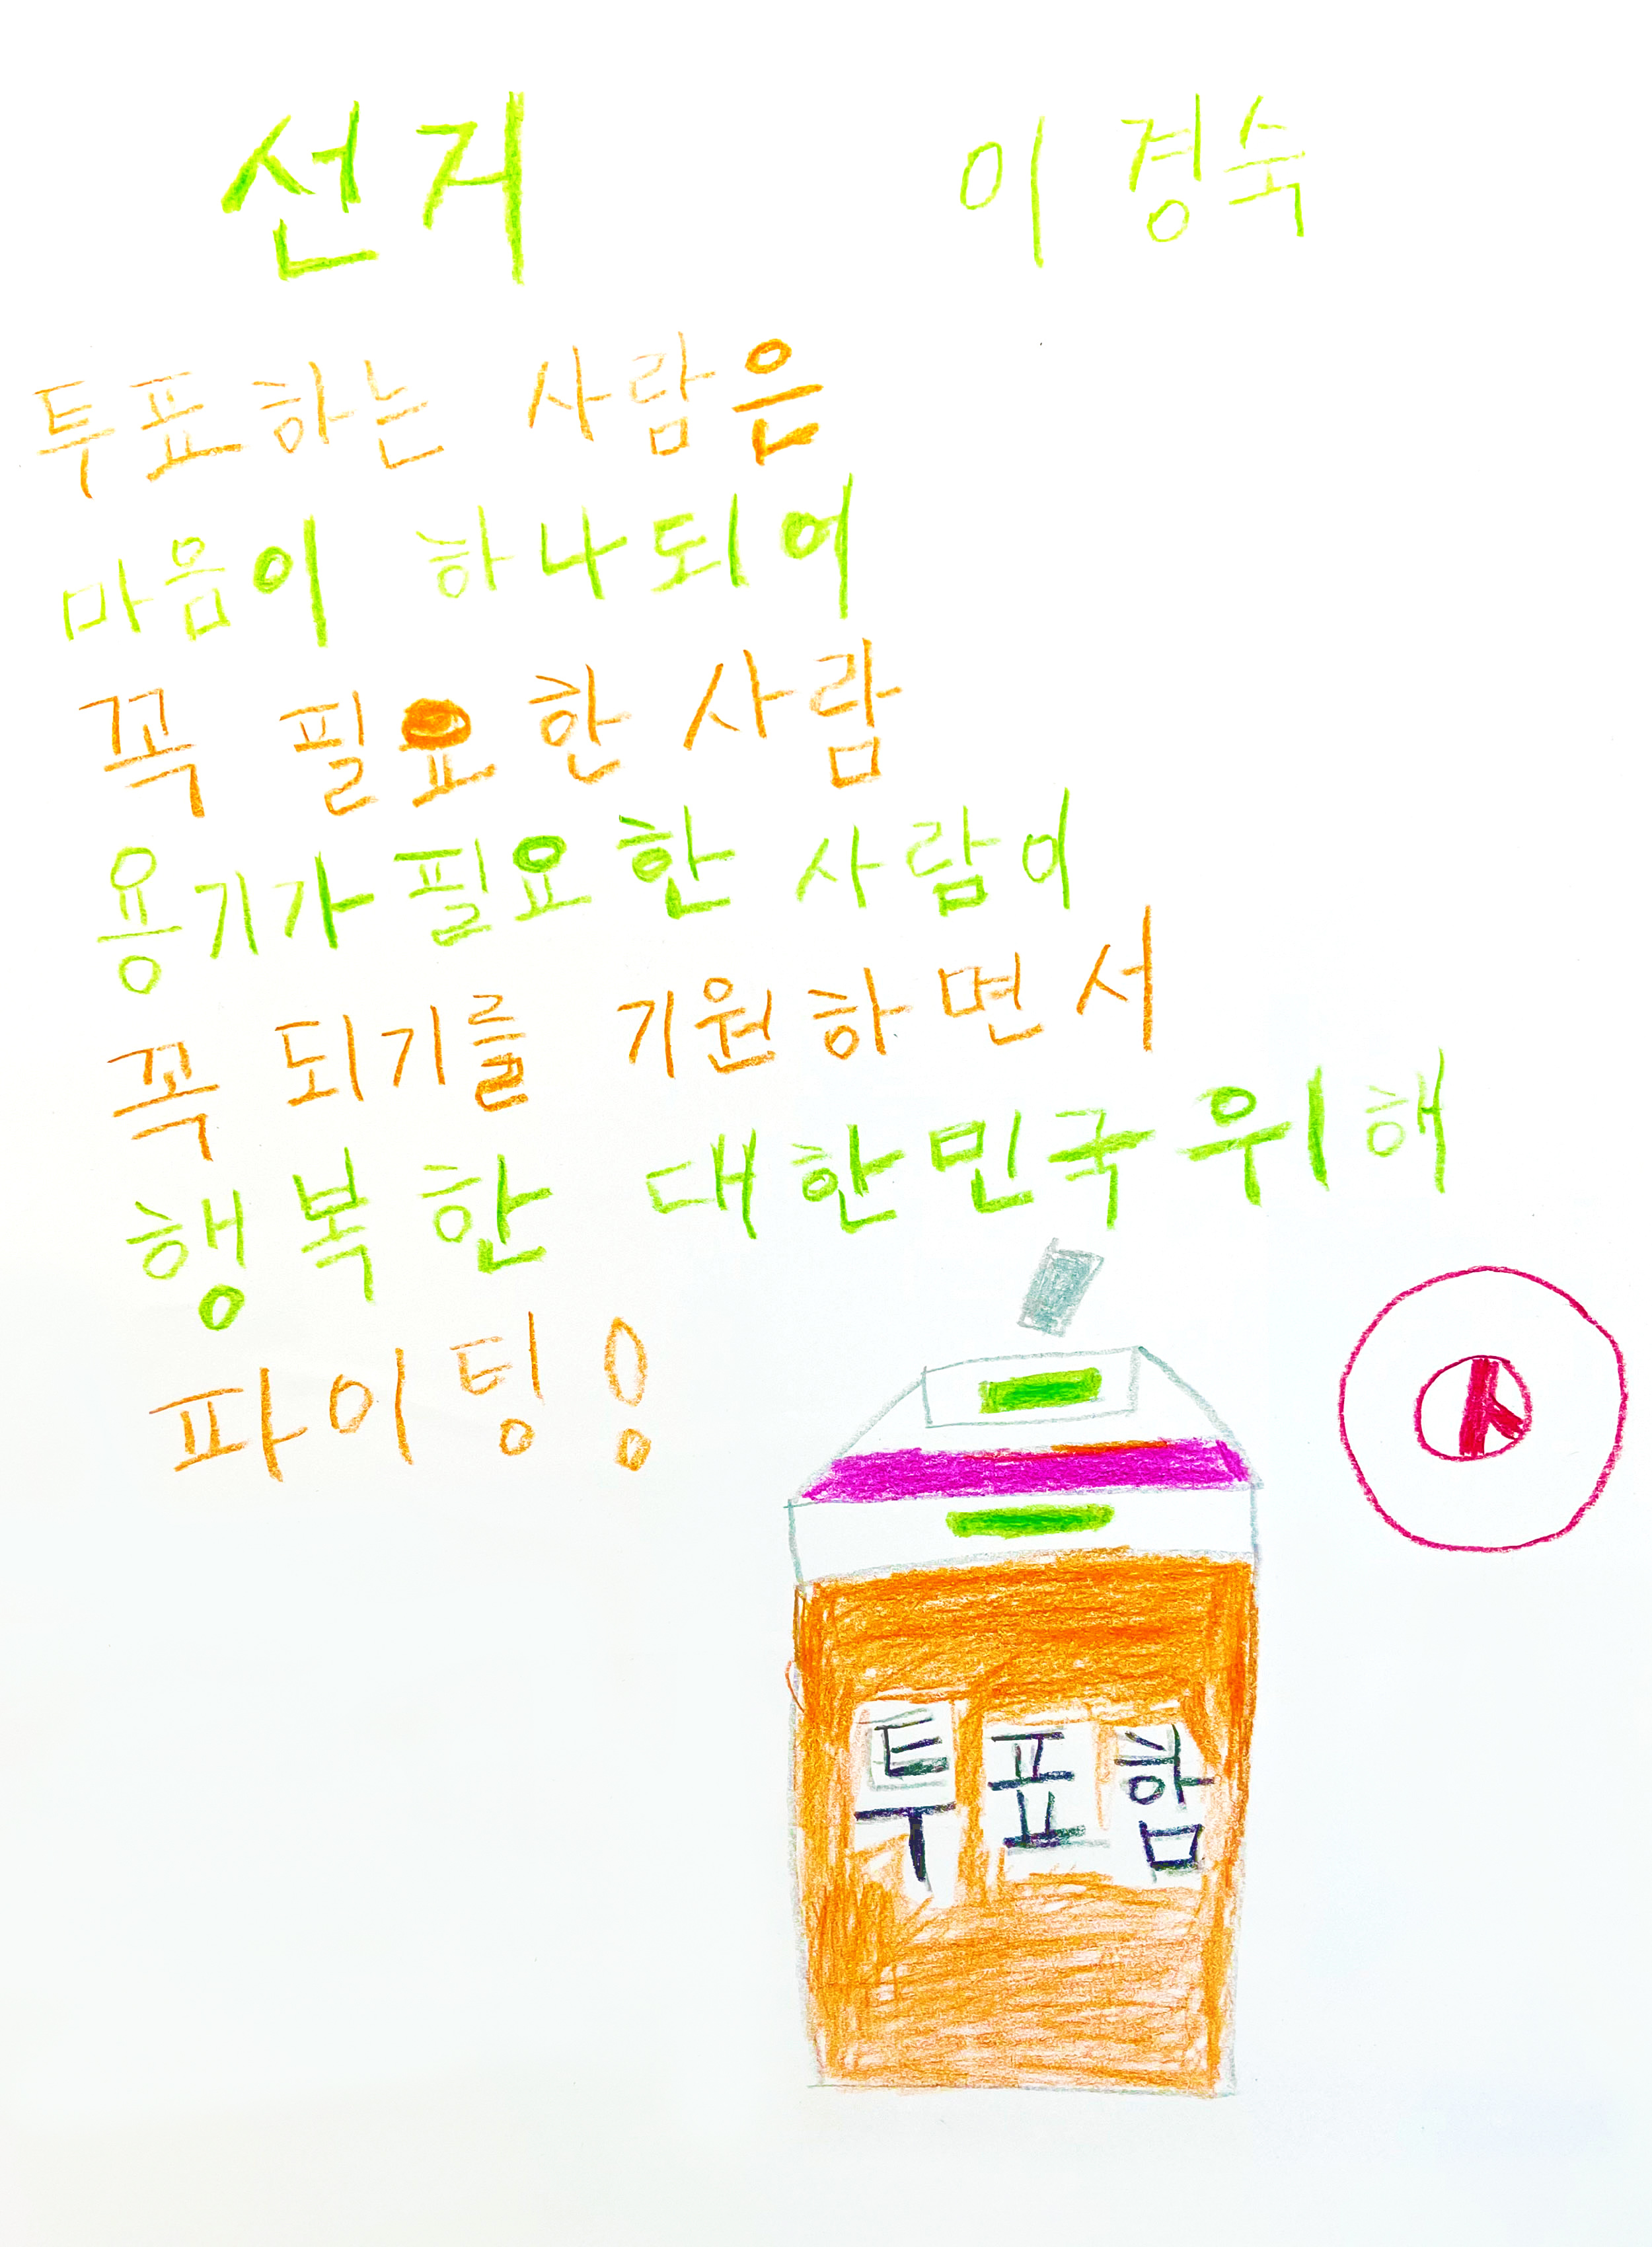 선거 이경숙
투표하는 사람은
마음이 하나되어
꼭 필요한 사람
용기가 필요한 사람이
꼭 되기를 기원하면서
행복한 대한민국위해
파이팅!
투표함